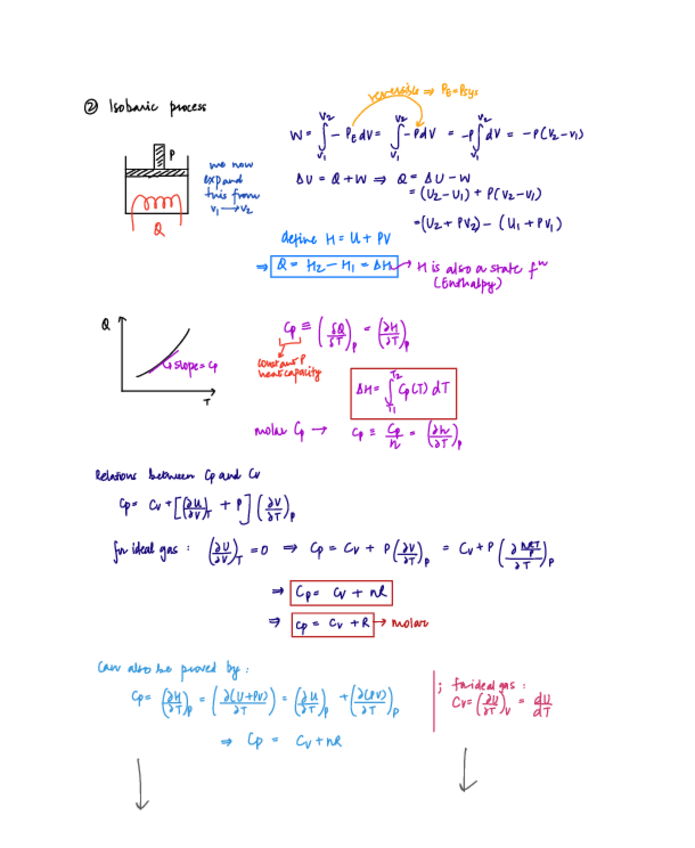 ② Isobaric process
reversible ⇒ P_E = P_sys
W = ∫_{V₁}^{V₂} - P_E dV = ∫_{V₁}^{V₂} - P dV = -P ∫_{V₁}^{V₂} dV = -P(V₂-V₁)
P
Q
we now
expand
this from
V₁ → V₂
ΔU = Q + W ⇒ Q = ΔU - W
= (U₂ - U₁) + P(V₂-V₁)
= (U₂ + PV₂) - (U₁ + PV₁)
define H = U + PV
⇒ Q = H₂ - H₁ = ΔH → H is also a state fⁿ
(Enthalpy)
Q
slope = Cp
T
Cp ≡ (δQ/δT)_P = (∂H/∂T)_P
constant P
heat capacity
ΔH = ∫_{T₁}^{T₂} Cp(T) dT
molar Cp → cp ≡ Cp/n = (∂h/∂T)_P
Relations between Cp and Cv
Cp = Cv + [(∂U/∂V)_T + P] (∂V/∂T)_P
for ideal gas : (∂U/∂V)_T = 0 ⇒ Cp = Cv + P(∂V/∂T)_P = Cv + P(∂ nRT/P / ∂T)_P
⇒ Cp = Cv + nR
⇒ cp = cv + R → molar
Can also be proved by :
Cp = (∂H/∂T)_P = (∂(U+PV)/∂T)_P = (∂U/∂T)_P + (∂(PV)/∂T)_P
⇒ Cp = Cv + nR
; for ideal gas :
Cv = (∂U/∂T)_V = dU/dT